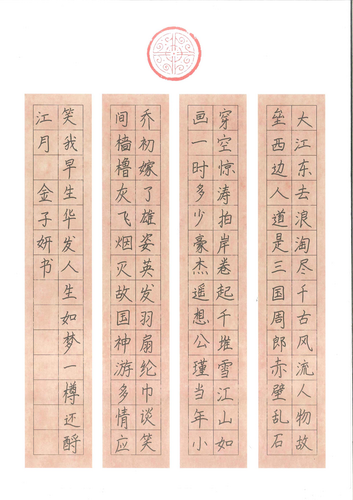 大江东去浪淘尽千古风流人物故
垒西边人道是三国周郎赤壁乱石
穿空惊涛拍岸卷起千堆雪江山如
画一时多少豪杰遥想公瑾当年小
乔初嫁了雄姿英发羽扇纶巾谈笑
间樯橹灰飞烟灭故国神游多情应
笑我早生华发人生如梦一樽还酹
江月 金子妍书